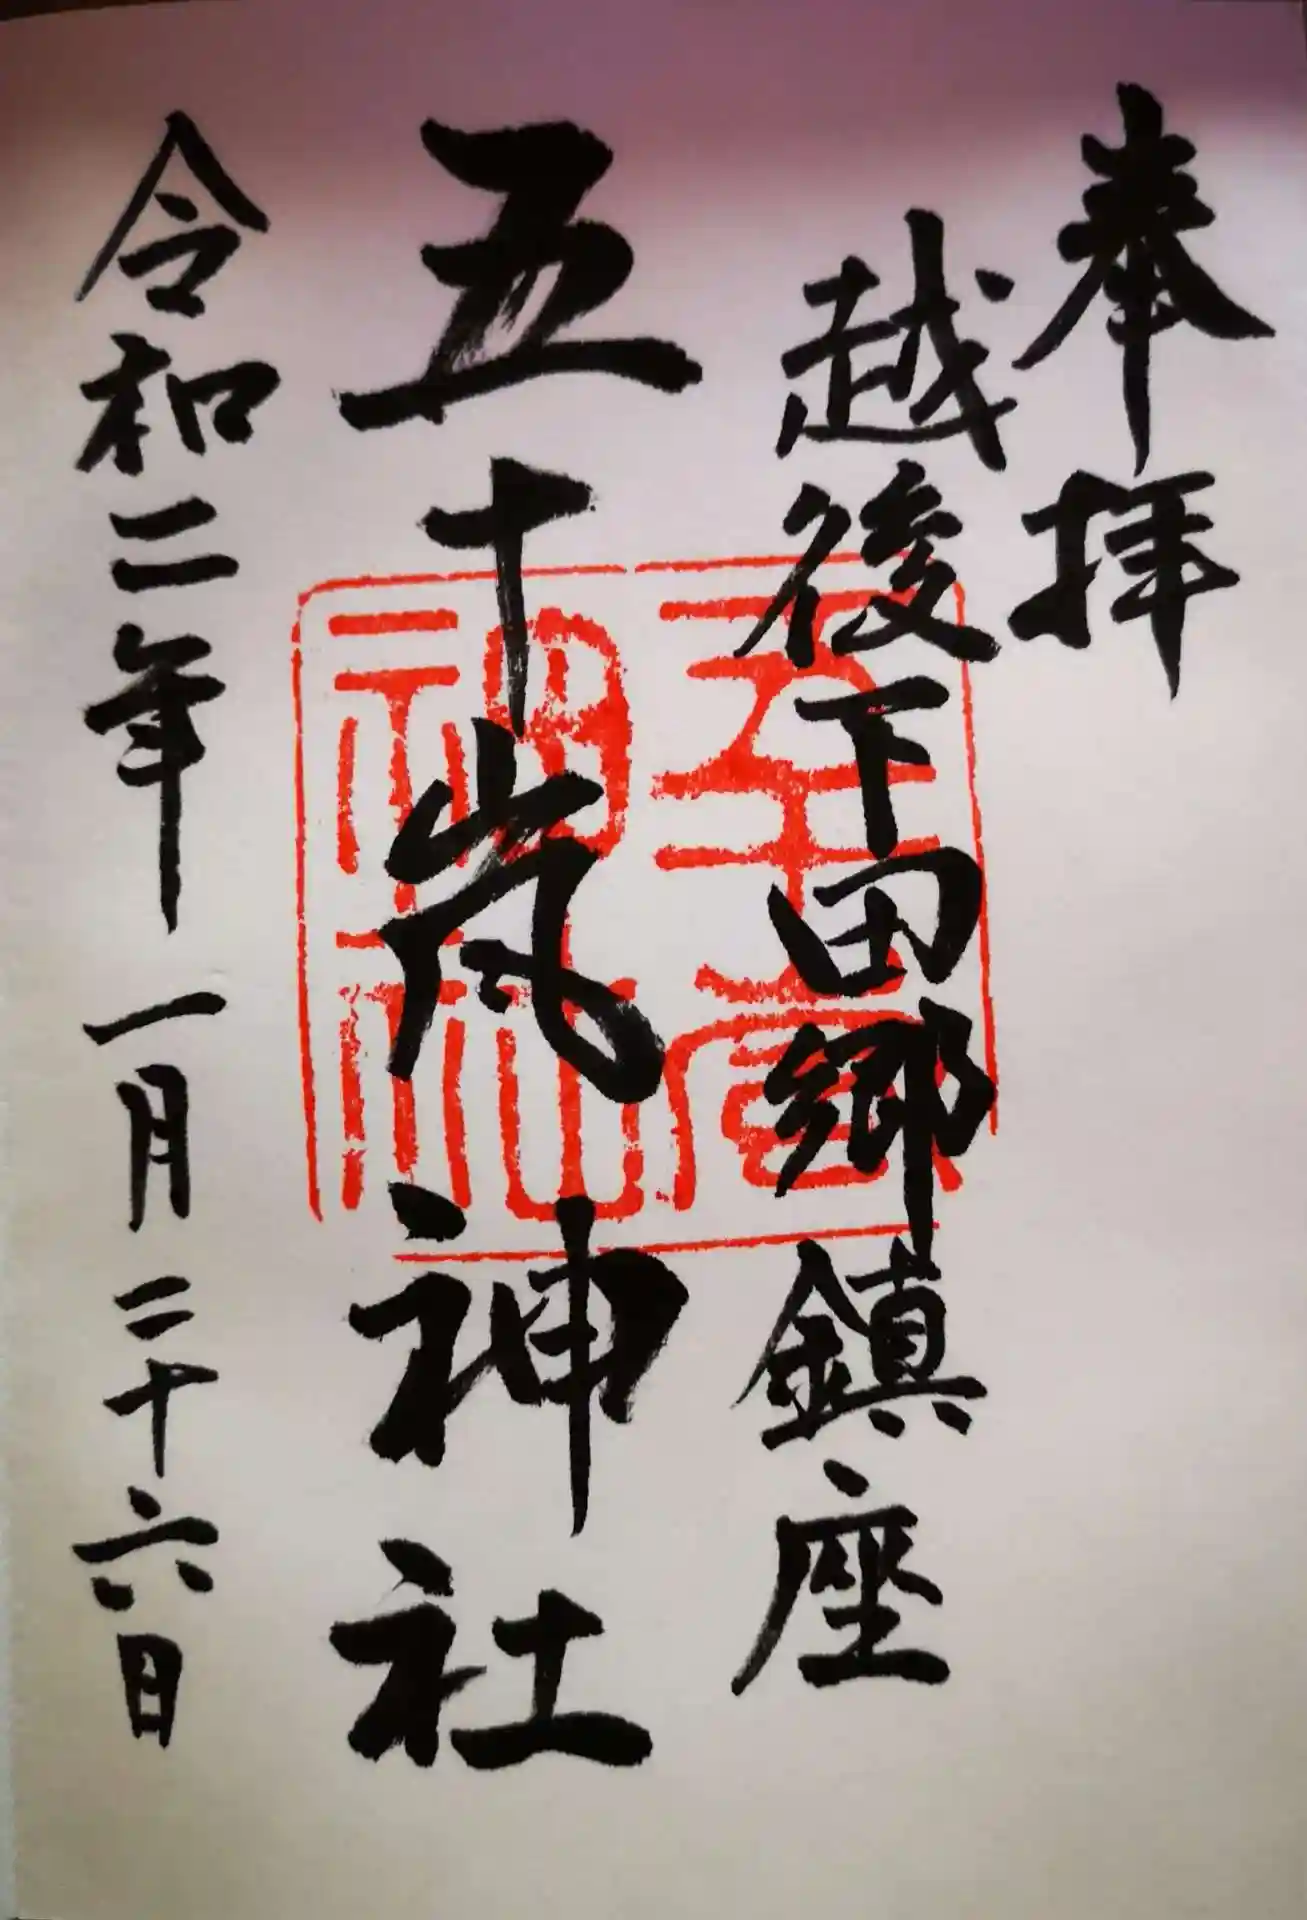 奉拝
越後下田郷鎮座
五十嵐神社
令和二年一月二十六日
五十嵐神社